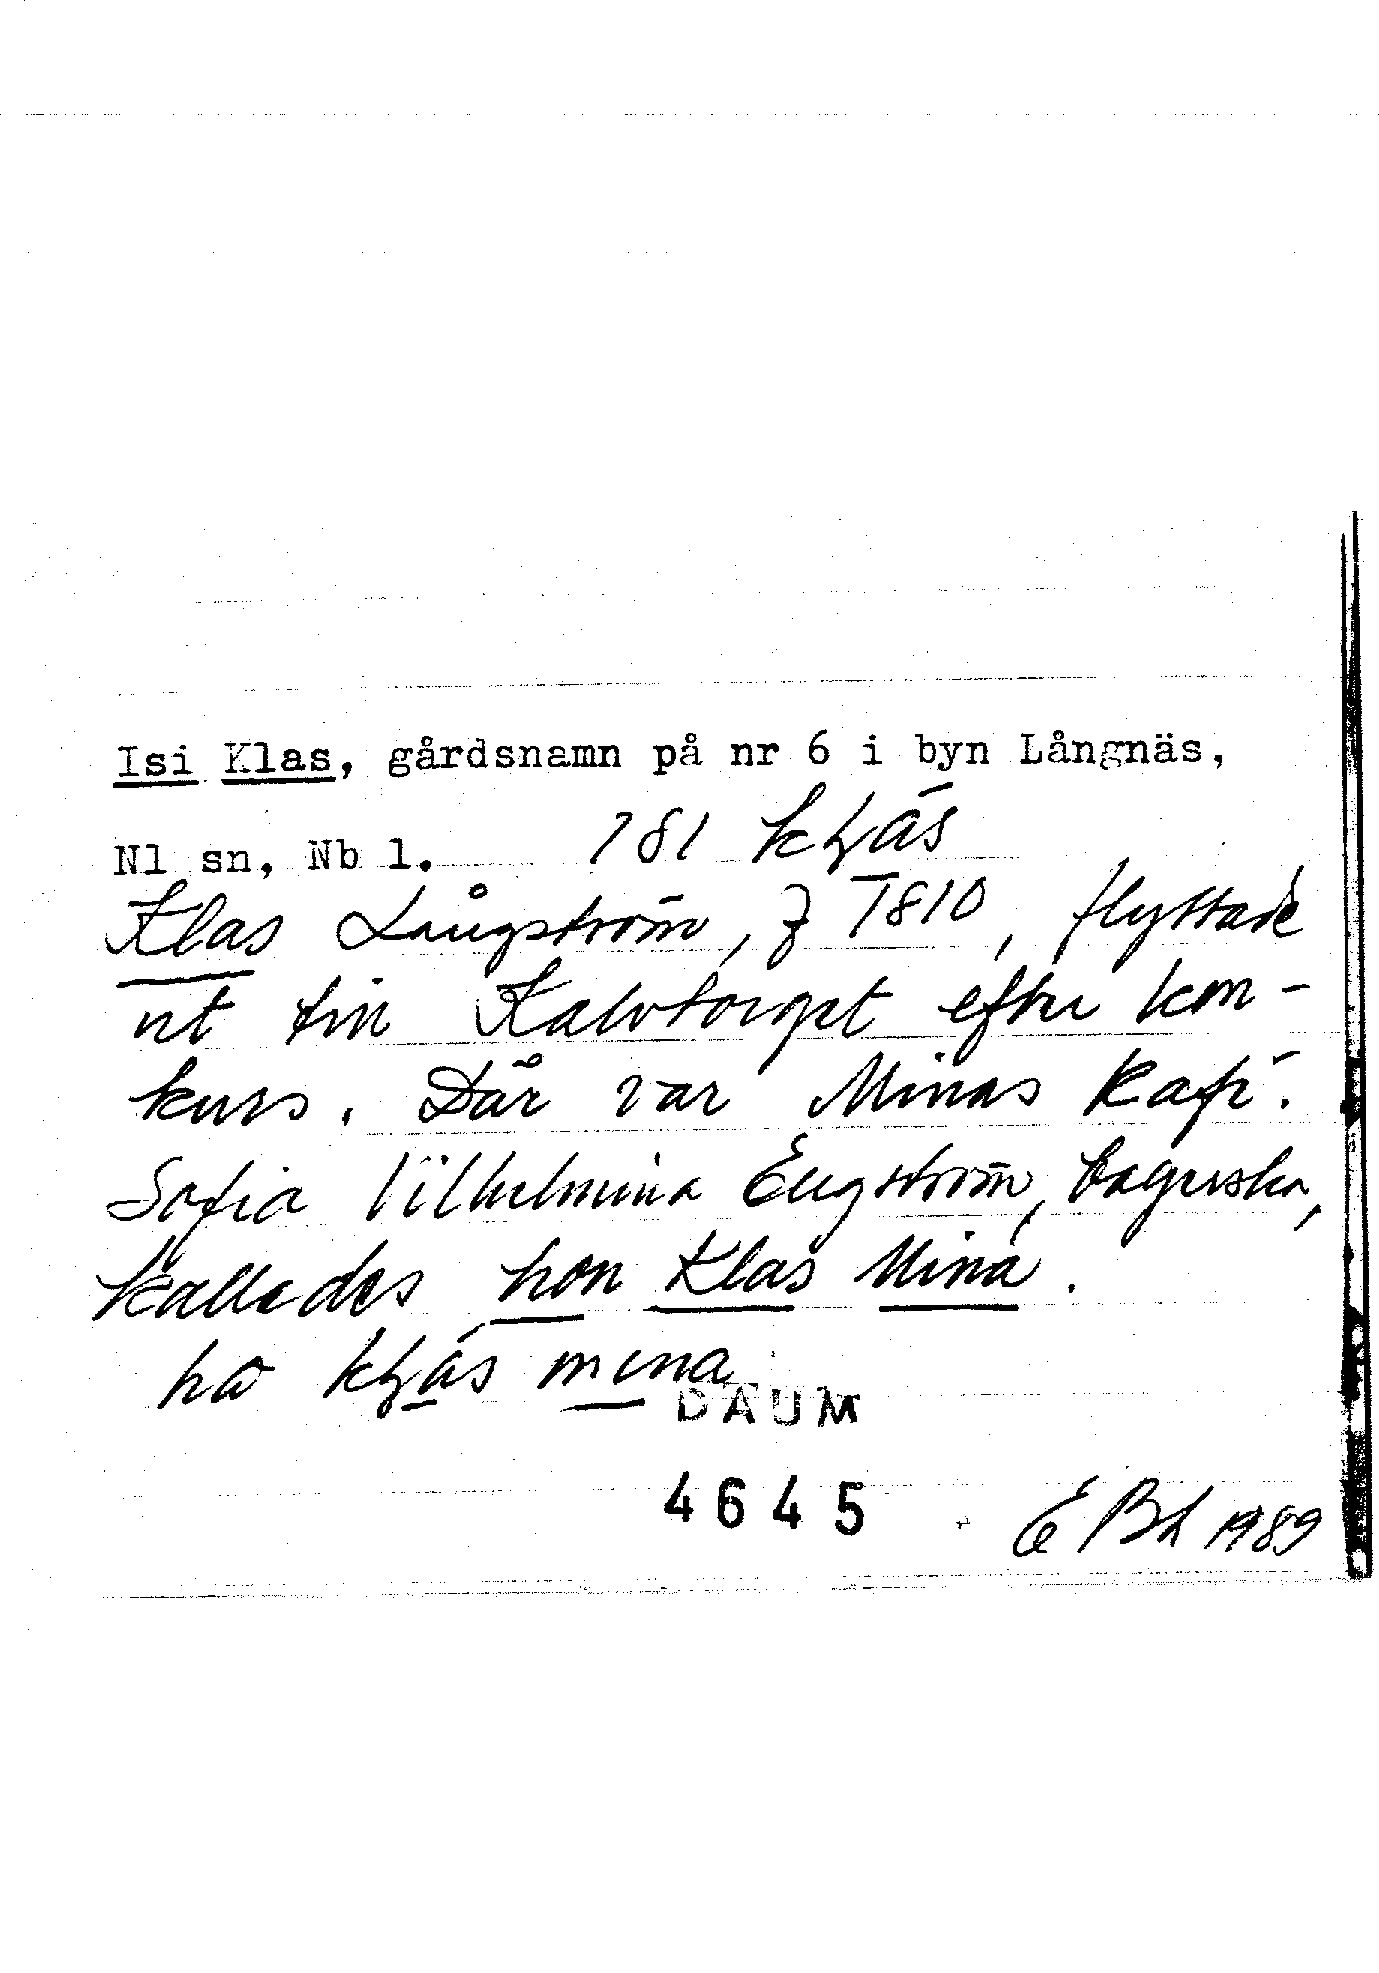 Isi Klas, gårdsnamn på nr 6 i byn Långnäs,
Nl sn, Nb l.
Klas Långström, f 1810, flyttade
ut till Kalvtorget efter kon-
kurs. Där var Minas Kafé.
Sofia Vilhelmina Engström, bagerska,
kallades hon Klas Mina.
mina
DAUM
4645
E Bl 1989